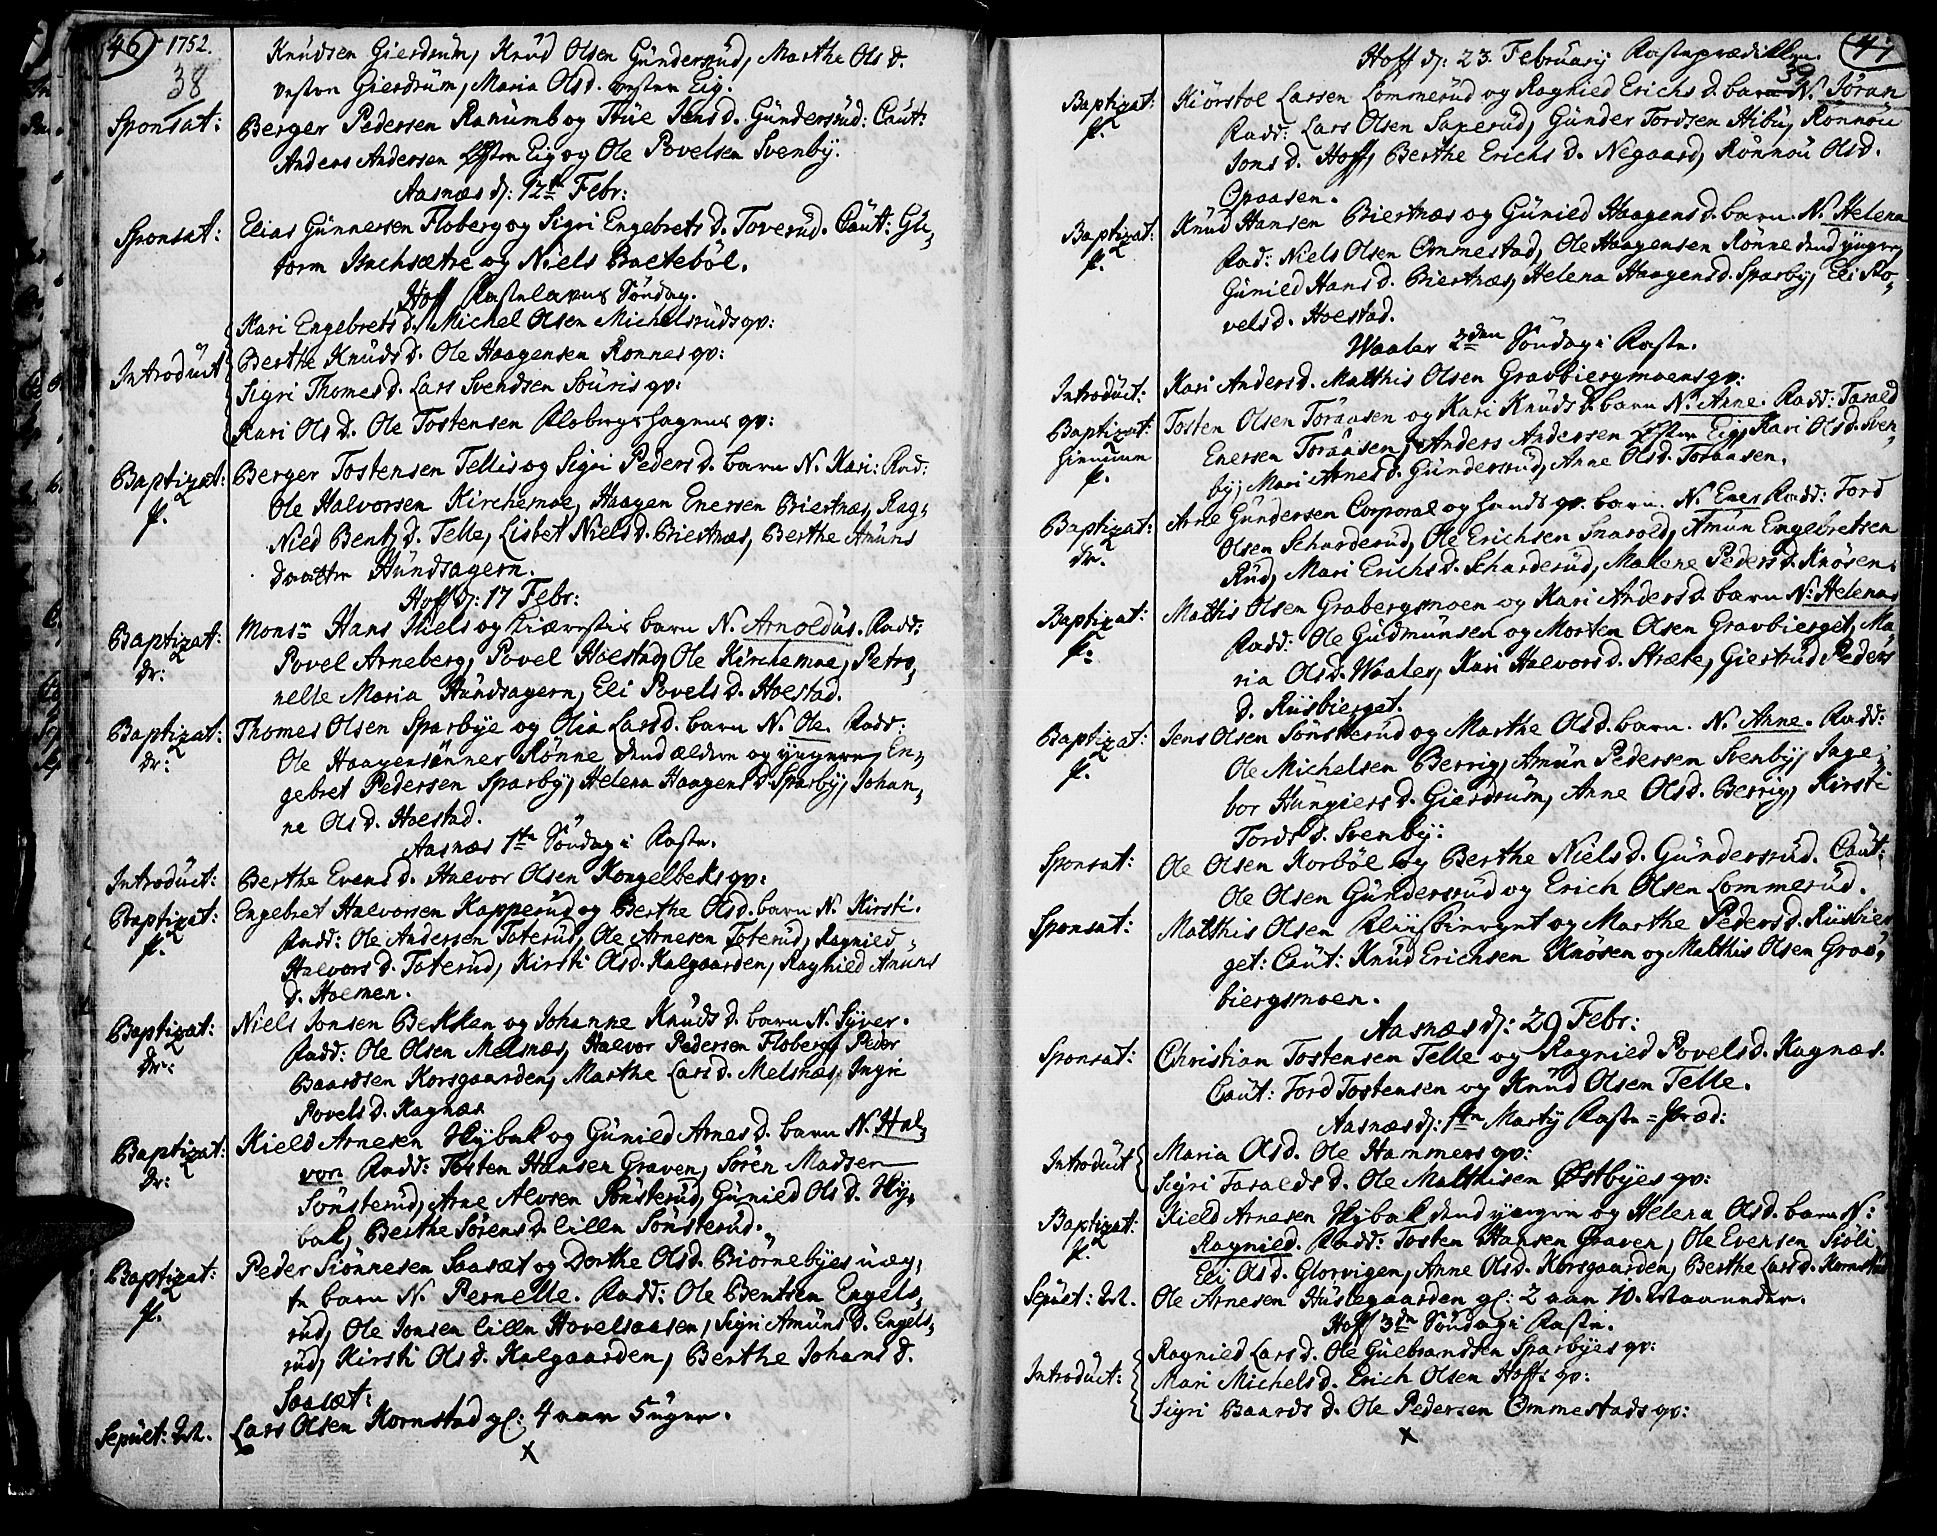 46 1752.
38
Knudsen Gierdrum, Knud Olsen Gündersrud, Marthe Ols d.
vestre Gierdrum, Maria Olsd. vestre Eig.
Sponsat: Berger Pedersen Ranum og Jens d. Gündersrud: Caut:
Anders Andersen Eig og Ole Povelsen Svenby.
Aasnæs d: 12te Febr:
Sponsat: Elias Günnersen Floberg og Sigri Engebrets d. Toverud. Caut: Gu,
torm Bachsætre og Niels Bæteböl.
Hoff Fastelavns Söndag.
Kari Engebrets d. Michel Olsen Michelsruds qv:
Introdüct Berthe Knuds d. Ole Haagensen Rönnes qv:
Sigri Thomes d. Lars Svendsen Souris qv:
Kari Ols d. Ole Tostensen Flobergshagens qv:
Baptizat: Berger Tostensen Tellis og Sigri Peders d. barn N. Kari: Fad:
p. Ole Halvorsen Kirchemoe, Haagen Enersen Briertnæs, Rag,
nied Bentz d. Telle, Lisbet Niels d. Briertnæs, Berthe Amüns
daatter Hundsagern.
Hoff d: 17 Febr:
Baptizat: Monsr Hans Niels og Kiærestis barn N. Arnoldus. Fadd:
dr: Povel Arneberg, Povel Hoestad, Ole Kirchemoe, Petro,
nelle Maria Hundsagern, Eli Povels d. Hoestad.
Baptizat: Thomes Olsen Sparbye og Olia Lars d. barn N. Ole. Fadd:
dr: Ole Haagensönner Rönne dend ældere og yngere, En,
gebret Pedersen Sparby, Helena Haagens d. Sparby, Johan,
ne Ols d. Hoestad.
Aasnæs 1te Söndag i Faste.
Introdüct: Berthe Evens d. Halvor Olsen Kongelbeks qv:
Baptizat: Engebret Halvorsen Kapperud og Berthe Ols d. barn N. Kirsti.
p. Fadd: Ole Andersen Toterud, Ole Arnesen Toterud, Ragnied
Halvors d. Toterud, Kirsti Olsd. Kalgaarden, Raghied Amüns
d. Hoemen.
Baptizat: Niels Jonsen Bekken og Johanne Knuds d. barn N. Syver.
dr: Fadd: Ole Olsen Melsnæs, Halvor Pedersen Floberg, Peder
Baardsen Korsgaarden, Marthe Lars d. Melsnæs, Ingri
Povels d. Kagnæs.
Baptizat: Kield Arnesen Hybak og Günild Arnes d. barn N. Hal,
dr: vor. Fadd: Tosten Hansen Graven, Sören Madsen
Sönsterud, Arne Alvsen Sönsterud, Günild Ols d. Hy,
bak, Berthe Sörens d. lille Sönsterud.
Baptizat: Peder Siönnesen Saasæt og Dorthe Olsd. Biörnebyes uæg,
p. te barn N. Pernelle. Fadd: Ole Bentsen Engels,
rud, Ole Jonsen lille Hovelsaasen, Sigri Amüns d. Engels,
rud, Kirsti Ols d. Kalgaarden, Berthe Johans d.
Saasæt:
Sepult: Lars Olsen Kornstad gl: 4 aar 5 uger.
x
47
39
Hoff d: 23 Februarij Fasteprædikken.
Baptizat: Kiörstol Larsen Lommerud og Raghied Erichs d. barn N. Jöran
p. Fadd: Lars Olsen Saxerud, Günder Tordsen Hibu, Rönnou
Jons d. Hoff, Berthe Erichs d. Negaard, Rönnou Olsd.
Opaasen.
Baptizat: Knud Hansen Briertnæs og Günild Haagens d. barn N. Helena
p. Fad: Niels Olsen Ommestad, Ole Haagensen Rönne dend yngre,
Günild Hans d. Briertnæs, Helena Haagens d. Sparby, Eli Po,
vels d. Hoestad.
Waaler 2den Söndag i Faste.
Introdüct: Kari Anders d. Matthis Olsen Gravbiergmoens qv:
Baptizat: Tosten Olsen Toraasen og Kari Knuds d. barn N. Anne. Fadd: Tarald
p. Enersen Toraasen, Anders Andersen Eig, Kari Ols d. Sven,
by, Mari Arnes d. Gündersrud, Anne Olsd. Toraasen.
Baptizat: Arne Gündersen Corporal og hands qv. barn N. Ener Fadd: Tord
dr. Olsen Scharderud, Ole Erichsen Snarold, Amün Engebretsen
Rud, Mari Erichs d. Scharderud, Malene Peders d. Knösen.
Baptizat: Mathis Olsen Grabergsmoen og Kari Anders d. barn N. Helena
p: Fadd: Ole Gudmunsen og Morten Olsen Gravbierget, Ma
ria Ols d. Waaler, Kari Halvors d. Stræte, Giertrud Peders
d. Riisbierget.
Baptizat: Jens Olsen Sönsterud og Marthe Ols d. barn N. Anne. Fadd:
p. Ole Michelsen Berrig, Amün Pedersen Svenby, Inge,
bor Hüngiers d. Gierdrum, Anne Ols d. Berrig, Kirsti
Tords d. Svenby:
Sponsat: Ole Olsen Korböl og Berthe Niels d. Gündersrud. Caut:
Ole Olsen Gündersrud og Erich Olsen Lommerud.
Sponsat: Matthis Olsen og Marthe Peders d. Riisbier
get: Caut: Knud Erichsen Knösen og Matthis Olsen Grav,
biergsmoen.
Aasnæs d: 29 Febr:
Sponsat: Christian Tostensen Telle og Ragnied Povels d. Kagnæs.
Caut: Tord Tostensen og Knud Olsen Telle.
Aasnæs d: 1ste Martij Faste=Præd:
Introdüct Maria Olsd. Ole Hammers qv:
Sigri Taralds d. Ole Matthisen Östbyes qv:
Baptizat: Kield Arnesen Hybak dend yngre og Helena Ols d. barn N:
p. Ragnied. Fadd: Tosten Hansen Graven, Ole Evensen Siöli
Eli Ols d. Glorvigen, Anne Ols d. Korsgaarden, Berthe Lars d. Kornstad
Sepult: Ole Arnesen Huslegaarden gl: 2 aar 10. Maaneder.
Hoff 3die Söndag i Faste.
Ragnied Lars d. Ole Guebrandsen Sparbyes qv:
Introdüct: Mari Michels d. Erich Olsen Hoffs qv:
Sigri Baards d. Ole Pedersen Ommestads qv:
x